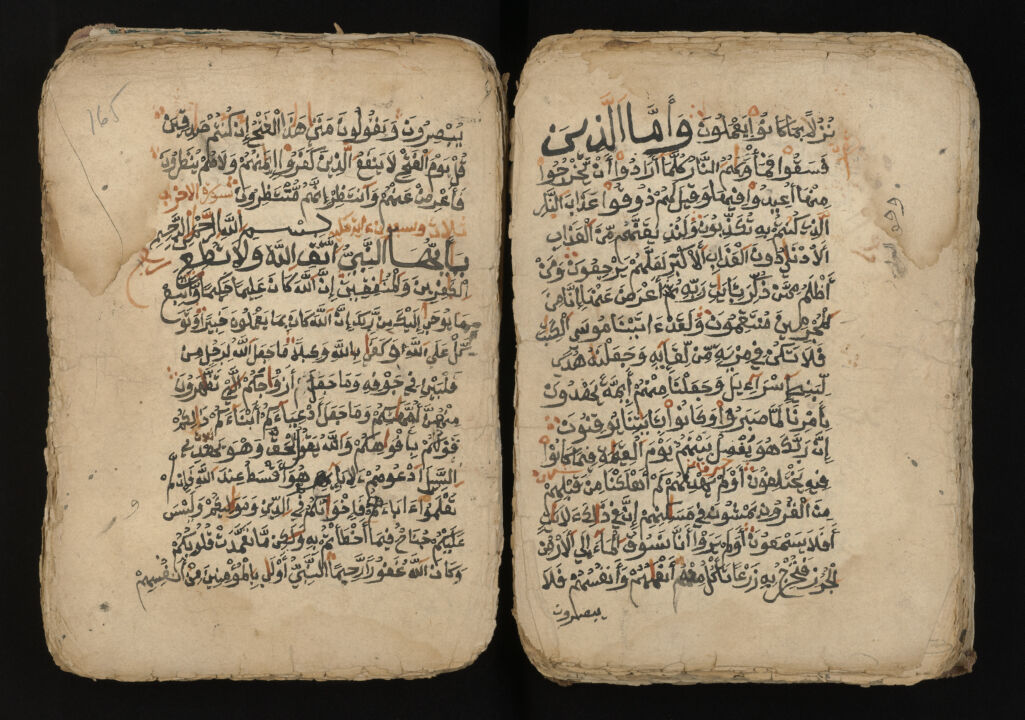 نُزُلًا بِمَا كَانُوا يَعْمَلُونَ وَأَمَّا الَّذِينَ
فَسَقُوا فَمَأْوَاهُمُ النَّارُ كُلَّمَا أَرَادُوا أَنْ يَخْرُجُوا
مِنْهَا أُعِيدُوا فِيهَا وَقِيلَ لَهُمْ ذُوقُوا عَذَابَ النَّارِ
الَّذِي كُنْتُمْ بِهِ تُكَذِّبُونَ وَلَنُذِيقَنَّهُمْ مِنَ الْعَذَابِ
الْأَدْنَى دُونَ الْعَذَابِ الْأَكْبَرِ لَعَلَّهُمْ يَرْجِعُونَ وَمَنْ
أَظْلَمُ مِمَّنْ ذُكِّرَ بِآيَاتِ رَبِّهِ ثُمَّ أَعْرَضَ عَنْهَا إِنَّا مِنَ
الْمُجْرِمِينَ مُنْتَقِمُونَ وَلَقَدْ آتَيْنَا مُوسَى الْكِتَابَ
فَلَا تَكُنْ فِي مِرْيَةٍ مِنْ لِقَائِهِ وَجَعَلْنَاهُ هُدًى
لِبَنِي إِسْرَائِيلَ وَجَعَلْنَا مِنْهُمْ أَئِمَّةً يَهْدُونَ
بِأَمْرِنَا لَمَّا صَبَرُوا وَكَانُوا بِآيَاتِنَا يُوقِنُونَ
إِنَّ رَبَّكَ هُوَ يَفْصِلُ بَيْنَهُمْ يَوْمَ الْقِيَامَةِ فِيمَا كَانُوا
فِيهِ يَخْتَلِفُونَ أَوَلَمْ يَهْدِ لَهُمْ كَمْ أَهْلَكْنَا مِنْ قَبْلِهِمْ
مِنَ الْقُرُونِ يَمْشُونَ فِي مَسَاكِنِهِمْ إِنَّ فِي ذَلِكَ لَآيَاتٍ
أَفَلَا يَسْمَعُونَ أَوَلَمْ يَرَوْا أَنَّا نَسُوقُ الْمَاءَ إِلَى الْأَرْضِ
الْجُرُزِ فَنُخْرِجُ بِهِ زَرْعًا تَأْكُلُ مِنْهُ أَنْعَامُهُمْ وَأَنْفُسُهُمْ أَفَلَا
يبصرون
165
يُبْصِرُونَ وَيَقُولُونَ مَتَى هَذَا الْفَتْحُ إِنْ كُنْتُمْ صَادِقِينَ
قُلْ يَوْمَ الْفَتْحِ لَا يَنْفَعُ الَّذِينَ كَفَرُوا إِيمَانُهُمْ وَلَا هُمْ يُنْظَرُونَ
فَأَعْرِضْ عَنْهُمْ وَانْتَظِرْ إِنَّهُمْ مُنْتَظِرُونَ سورة الاحزاب
ثلاث وسبعون اية بسم الله الرحمن الرحيم
يَا أَيُّهَا النَّبِيُّ اتَّقِ اللَّهَ وَلَا تُطِعِ
الْكَافِرِينَ وَالْمُنَافِقِينَ إِنَّ اللَّهَ كَانَ عَلِيمًا حَكِيمًا وَاتَّبِعْ
مَا يُوحَى إِلَيْكَ مِنْ رَبِّكَ إِنَّ اللَّهَ كَانَ بِمَا تَعْمَلُونَ خَبِيرًا وَتَوَ
كَّلْ عَلَى اللَّهِ وَكَفَى بِاللَّهِ وَكِيلًا مَا جَعَلَ اللَّهُ لِرَجُلٍ مِنْ
قَلْبَيْنِ فِي جَوْفِهِ وَمَا جَعَلَ أَزْوَاجَكُمُ اللَّائِي تُظَاهِرُونَ
مِنْهُنَّ أُمَّهَاتِكُمْ وَمَا جَعَلَ أَدْعِيَاءَكُمْ أَبْنَاءَكُمْ ذَلِكُمْ
قَوْلُكُمْ بِأَفْوَاهِكُمْ وَاللَّهُ يَقُولُ الْحَقَّ وَهُوَ يَهْدِي
السَّبِيلَ ادْعُوهُمْ لِآبَائِهِمْ هُوَ أَقْسَطُ عِنْدَ اللَّهِ فَإِنْ لَمْ
تَعْلَمُوا آبَاءَهُمْ فَإِخْوَانُكُمْ فِي الدِّينِ وَمَوَالِيكُمْ وَلَيْسَ
عَلَيْكُمْ جُنَاحٌ فِيمَا أَخْطَأْتُمْ بِهِ وَلَكِنْ مَا تَعَمَّدَتْ قُلُوبُكُمْ
وَكَانَ اللَّهُ غَفُورًا رَحِيمًا النَّبِيُّ أَوْلَى بِالْمُؤْمِنِينَ مِنْ أَنْفُسِهِمْ